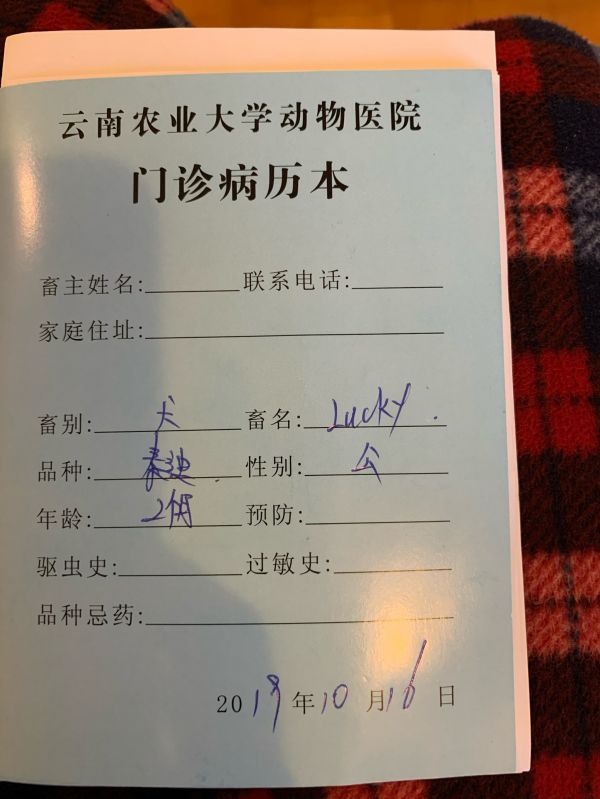 云南农业大学动物医院
门诊病历本
畜主姓名: 联系电话:
家庭住址:
畜别: 犬 畜名: Lucky.
品种: 泰迪. 性别: 公
年龄: 2个月 预防:
驱虫史: 过敏史:
品种忌药:
2019年10月16日